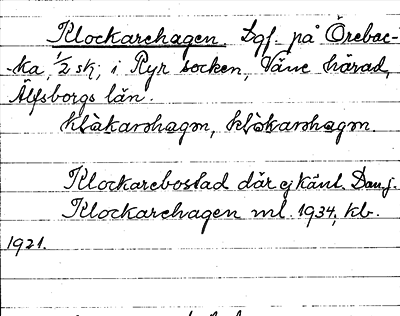 Klockarehagen. Lgf. på Örebac-
-ka, 1/2 sk; i Ryr socken, Väne härad,
Älfsborgs län.
klåkarshagen, klåkarshagen.
Klockarebostad där ej känt. Dan j.
Klockarehagen ml. 1934, kb.
1921.